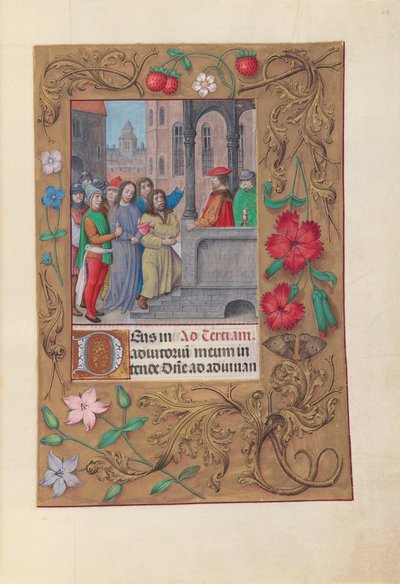 DEus in Ad Tertiam.
adiutoriū meum in
tende Dn̄e ad adiuuan